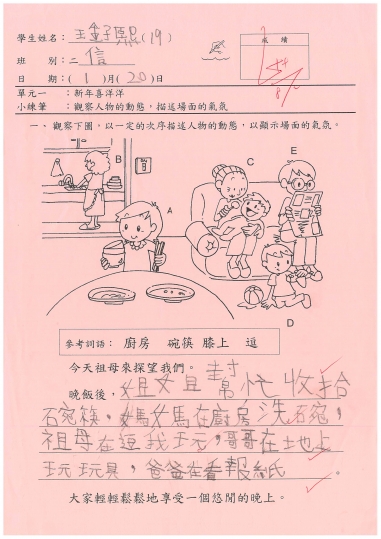 學生姓名：王子熙(19)
成績
班 別：二信
日 期：(1)月(20)日
單元一 ：新年喜洋洋
小練筆 ：觀察人物的動態，描述場面的氣氛
一、觀察下圖，以一定的次序描述人物的動態，以顯示場面的氣氛。
B
C
E
A
D
參考詞語： 廚房 碗筷 膝上 逗
今天祖母來探望我們。
晚飯後，姐姐幫忙收拾
碗筷，媽媽在廚房洗碗，
祖母在逗我玩，哥哥在土地上
玩玩具，爸爸在看報紙。
大家輕輕鬆鬆地享受一個悠閒的晚上。